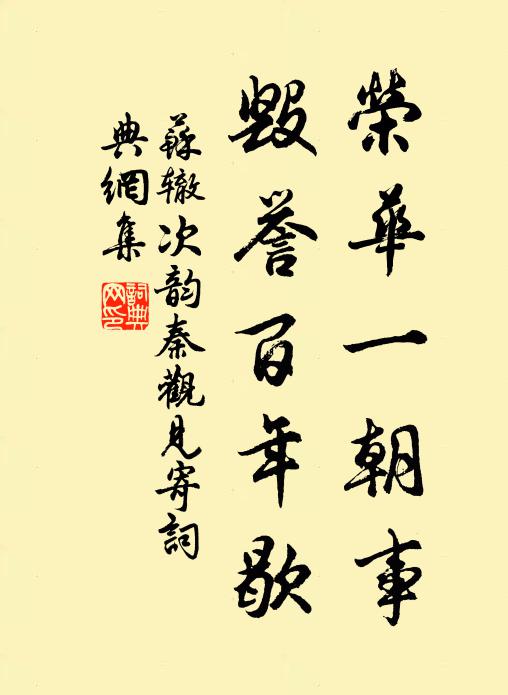 榮華一朝事
毀譽百年歇
蘇辙次韵秦觀見寄詞
典網集
詞典
网印